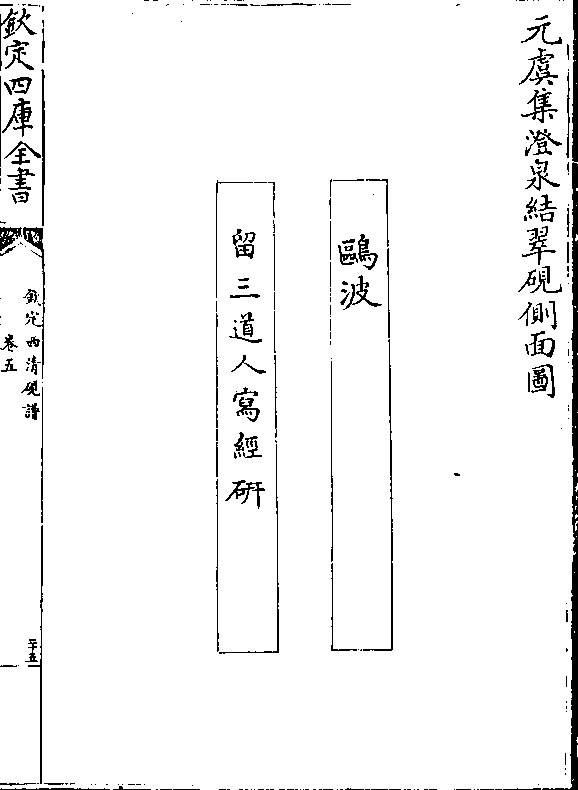 元虞集澄泉結翠硯側面圖
鷗波
留三道人寫經硏
欽定四庫全書
欽定西清硯譜
卷五
二十五